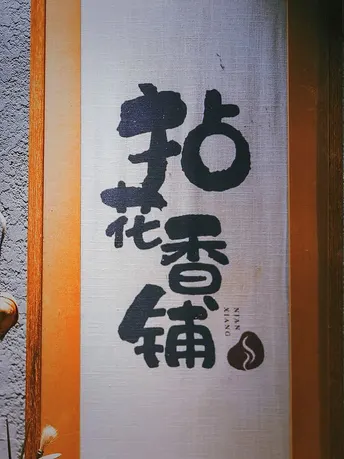 拈花香铺
NIAN
XIANG